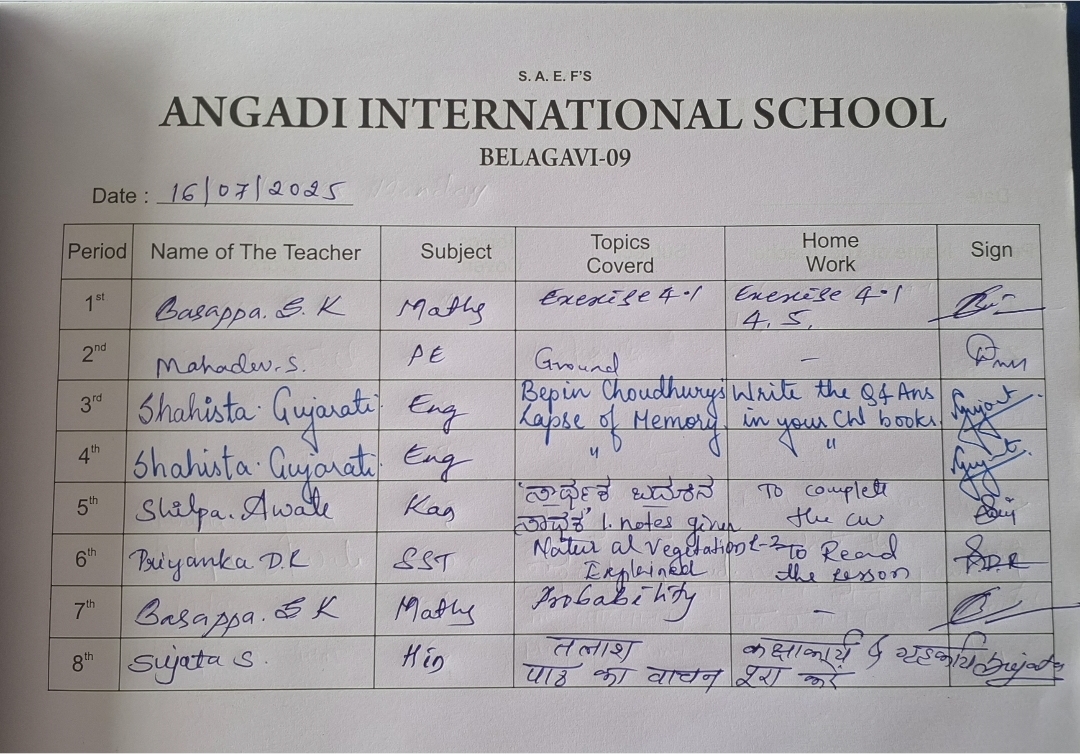 S. A. E. F'S
ANGADI INTERNATIONAL SCHOOL
BELAGAVI-09
Date : 16/07/2025
Period Name of The Teacher Subject Topics Coverd Home Work Sign
1st Basappa. S. K Maths Exercise 4.1 Exercise 4.1
4, 5,
2nd Mahadev. S. PE Ground —
3rd Shahista. Gujarati Eng Bepin Choudhury's Write the Q & Ans
Lapse of Memory in your CW books.
4th Shahista. Gujarati Eng " "
5th Shilpa. Awate Kan ಸಾರ್ಥಕ ಬದುಕಿನ To complete
ಸಾಧಕ 1. notes given the cw
6th Priyanka D.R SST Natural Vegetation L-2 To Read
Explained the lesson
7th Basappa. S K Maths Probability —
8th Sujata S. Hin तलाश कक्षाकार्य & गृहकार्य Sujata
पाठ का वाचन पूरा करें